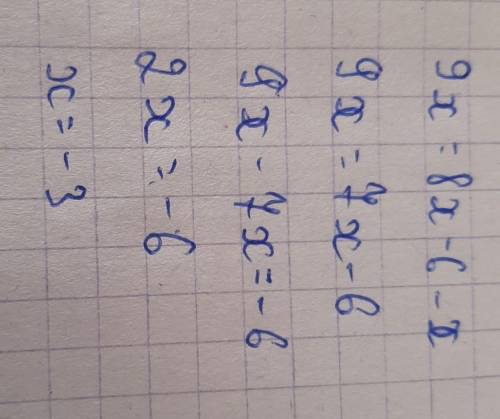 9x = 8x - 6 - x
9x = 7x - 6
9x - 7x = - 6
2x = - 6
x = - 3